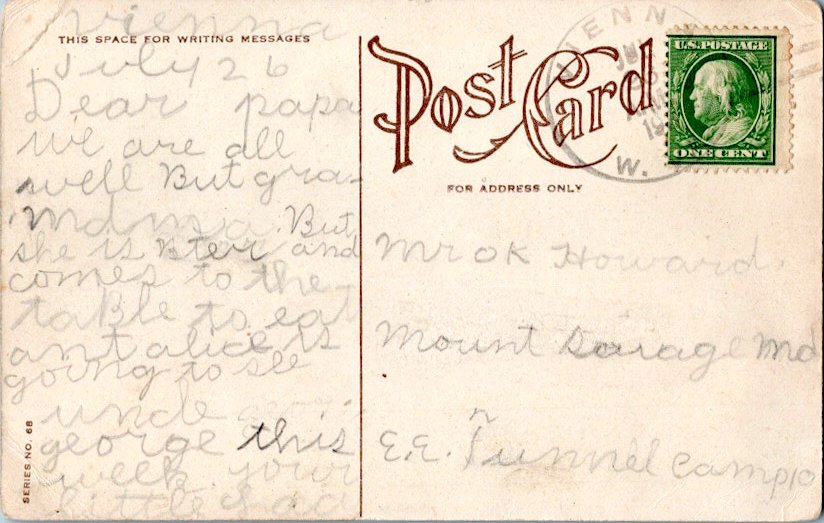 vienna
THIS SPACE FOR WRITING MESSAGES
July 26
Dear papa
we are all
well But gra-
ndma. But
she is Bter and
comes to the
taBle to eat
ant alice is
going to see
uncle
george this
week your
little
SERIES NO. 68
Post Card
FOR ADDRESS ONLY
VIENN
W.
U.S. POSTAGE
ONE CENT
Mr OK Howard.
Mount Savage Md
E.E. Tunnel Camp 10